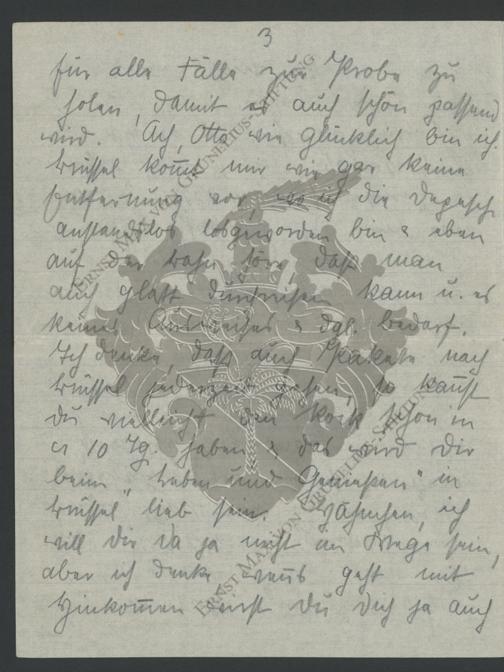 3
für alle Fälle zur Probe zu
holen, damit er auch schön passend
wird. Ach, Otto wie glücklich bin ich.
Brüssel kommt mir wie gar keine
Entfernung vor, wo ich die Depesche
anstandslos losgeworden bin & eben
auf der Bahn höre, daß man
auch glatt durchreisen kann u. es
keines Ausweises & dgl. bedarf.
Ich denke, daß auch Pakete nach
Brüssel jederzeit gehen, so kannst
du vielleicht den Rock schon in
ca 10 Tg. haben & das wird dir
beim "Leben und Genießen" in
Brüssel lieb sein. ich
will dir da ja nicht im Wege sein,
aber ich denke, wenns geht mit
Hinkommen wirst du dich ja auch
ERNST MAX VON GRUNELIUS-STIFTUNG
ERNST MAX VON GRUNELIUS-STIFTUNG